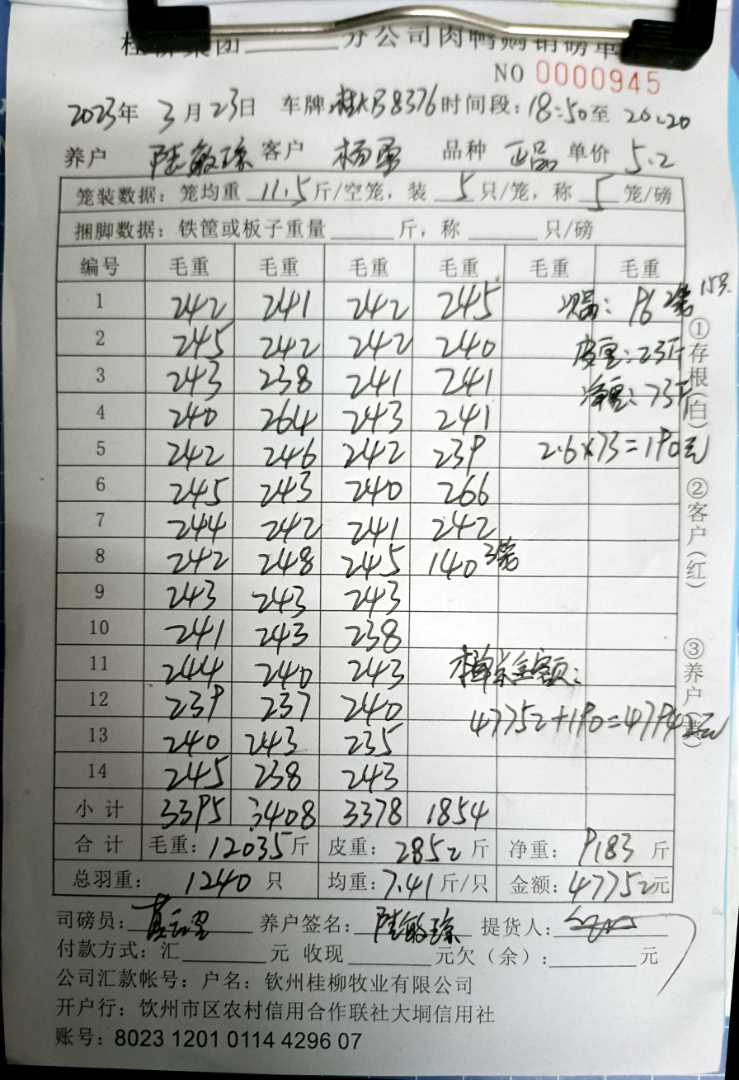 桂柳集团______分公司肉鸭购销磅单
NO 0000945
2023年 3月23日 车牌:桂KB8376 时间段:18:50至20:20
养户 陆敏琼 客户 杨勇 品种 正品 单价 5.2
笼装数据:笼均重 11.5 斤/空笼,装 5 只/笼,称 5 笼/磅
捆脚数据:铁筐或板子重量______斤,称______只/磅
编号 毛重 毛重 毛重 毛重 毛重 毛重
1 242 241 242 245 次品:96 2笼 15只
2 245 242 242 240 皮重:23斤
3 243 238 241 241 净重:73斤
4 240 264 243 241
5 242 246 242 239 2.6×73=190元
6 245 243 240 266
7 244 242 241 242
8 242 248 245 140 3笼
9 243 243 243
10 241 243 238
11 244 240 243 本单总金额:
12 239 237 240 47752+190=47942元
13 240 243 235
14 245 238 243
小计 3395 3408 3378 1854
合计 毛重:12035斤 皮重:2852斤 净重:9183斤
总羽重:1240只 均重:7.41斤/只 金额:47752元
司磅员: 养户签名:陆敏琼 提货人:
付款方式:汇______元 收现______元欠(余):______元
公司汇款帐号:户名:钦州桂柳牧业有限公司
开户行:钦州市区农村信用合作联社大垌信用社
账号:8023 1201 0114 4296 07
①存根(白)
②客户(红)
③养户(黄)